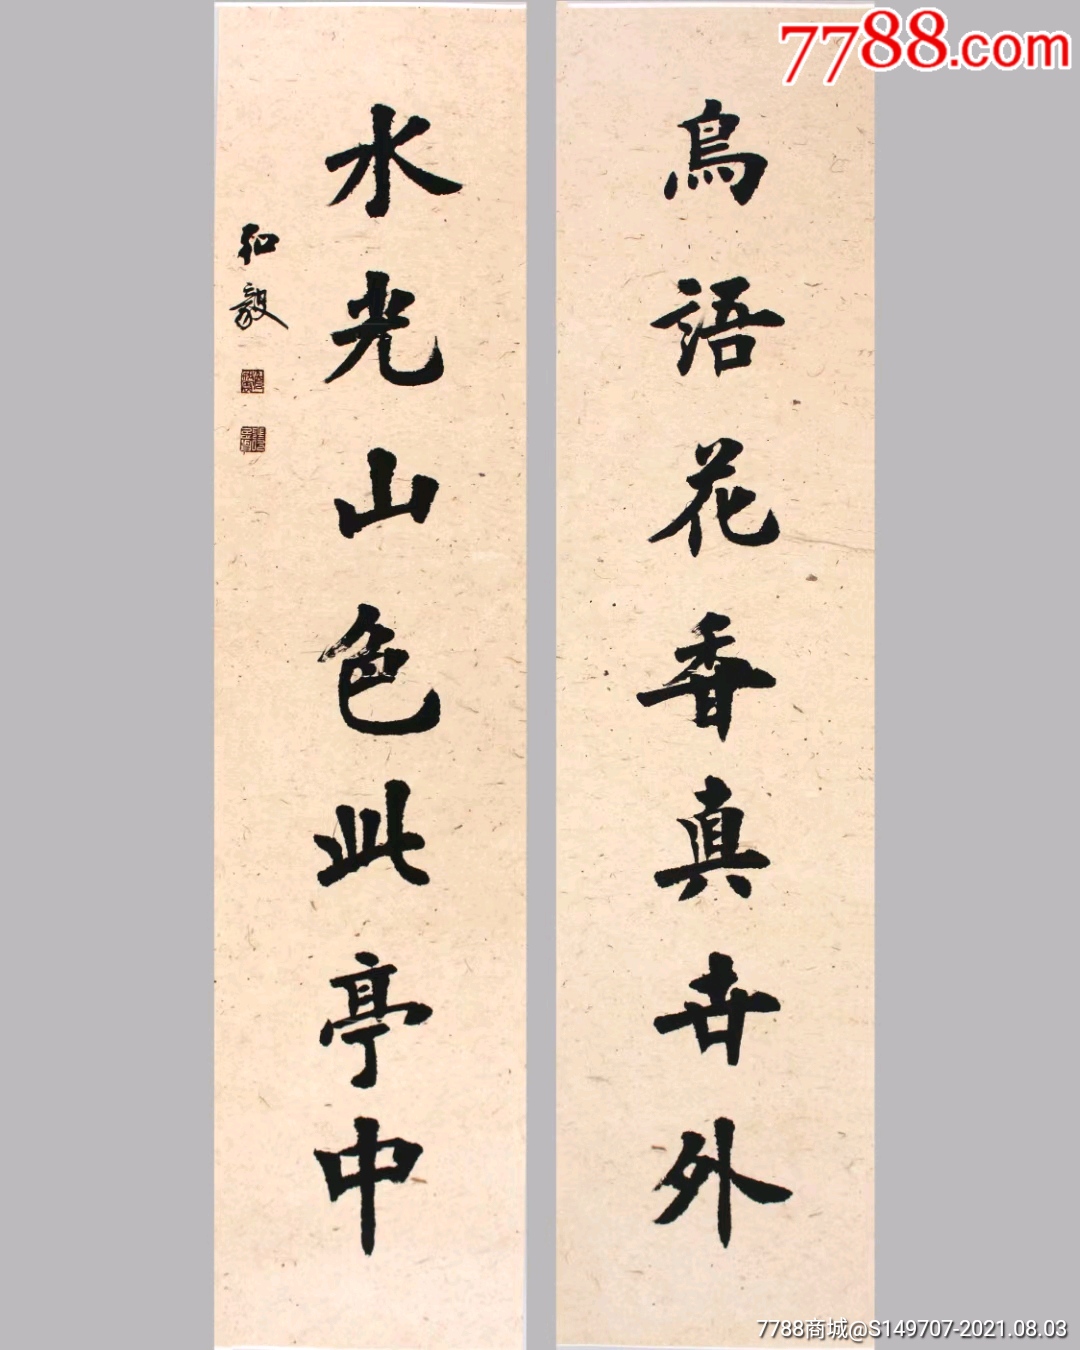 7788.com
鳥語花香真世外
水光山色此亭中
弘毅
7788商城@S149707-2021.08.03